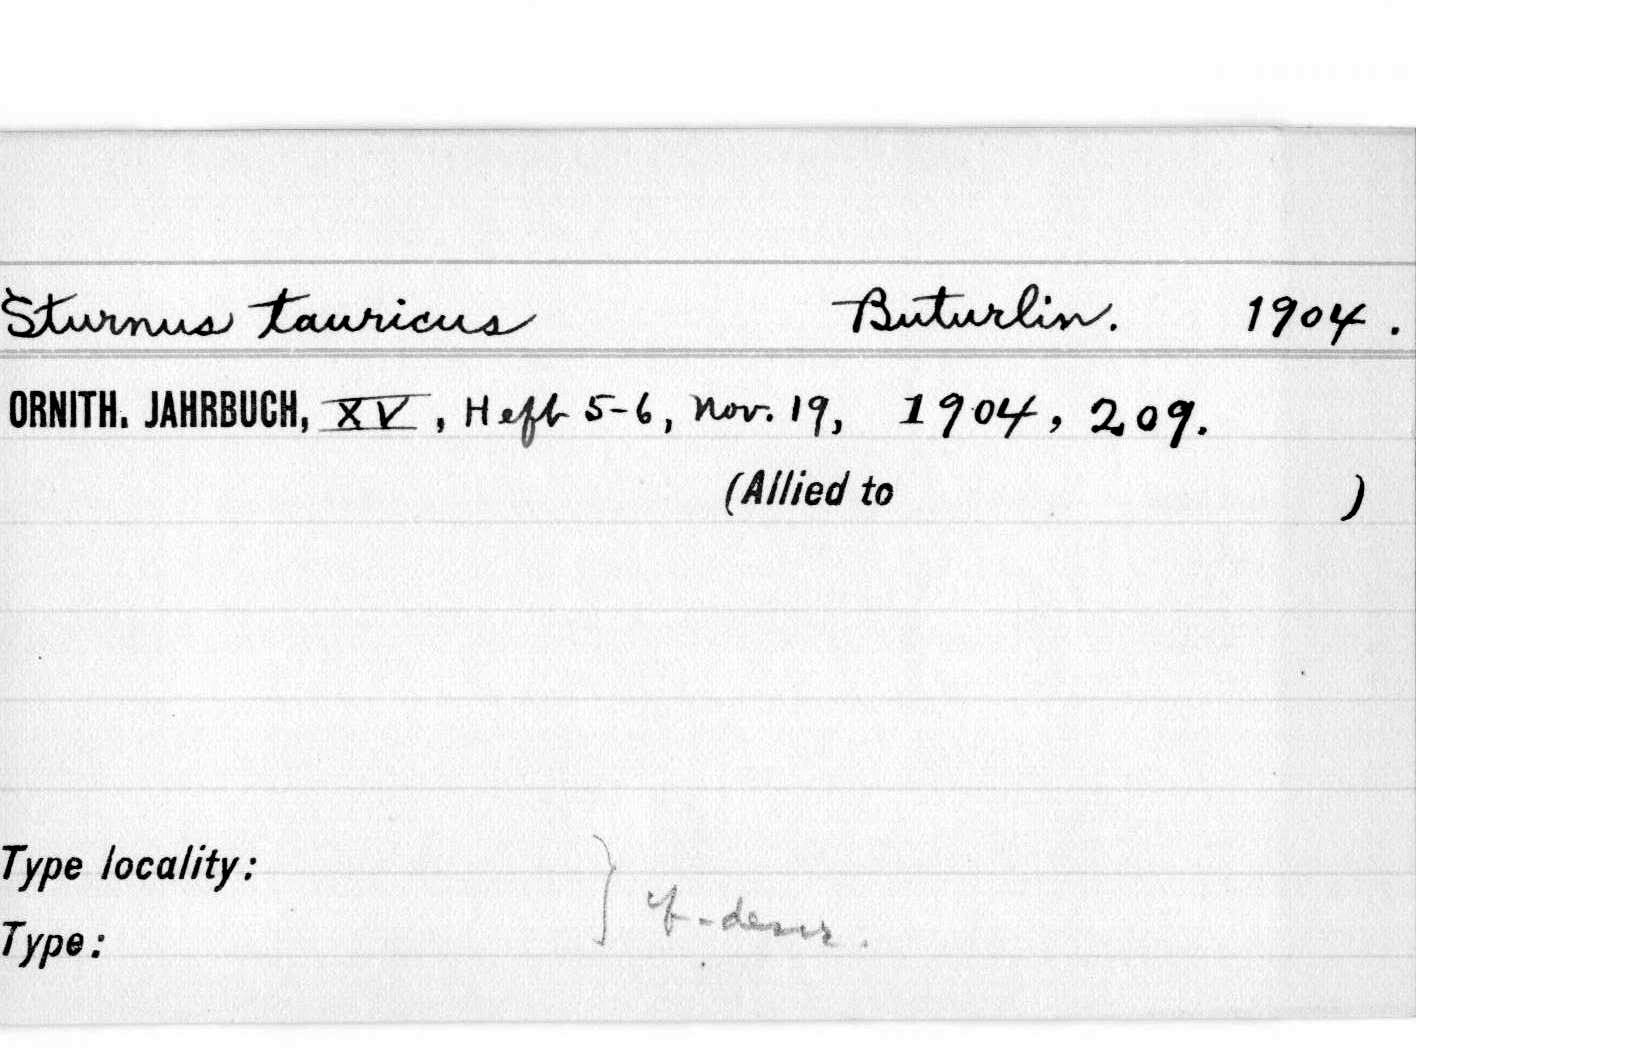 Sturnus tauricus Buturlin. 1904.
ORNITH. JAHRBUCH, XV, Heft 5-6, Nov. 19, 1904, 209.
(Allied to )
Type locality:
Type:
} cf. descr.